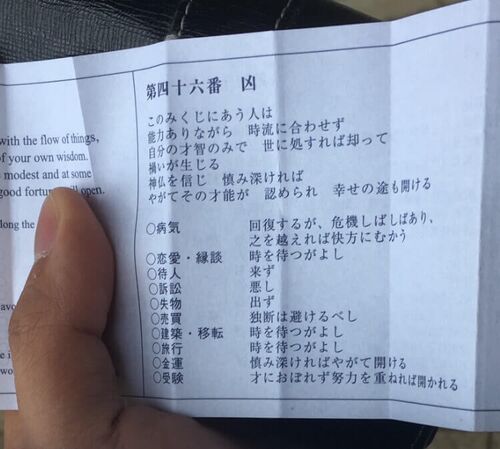 with the flow of things,
of your own wisdom.
modest and at some
good fortune will open.
long the
第四十六番 凶
このみくじにあう人は
能力ありながら 時流に合わせず
自分の才智のみで 世に処すれば却って
禍いが生じる
神仏を信じ 慎み深ければ
やがてその才能が 認められ 幸せの途も開ける
○病気 回復するが、危機しばしばあり、
之を越えれば快方にむかう
○恋愛・縁談 時を待つがよし
○待人 来ず
○訴訟 悪し
○失物 出ず
○売買 独断は避けるべし
○建築・移転 時を待つがよし
○旅行 時を待つがよし
○金運 慎み深ければやがて開ける
○受験 才におぼれず努力を重ねれば開かれる